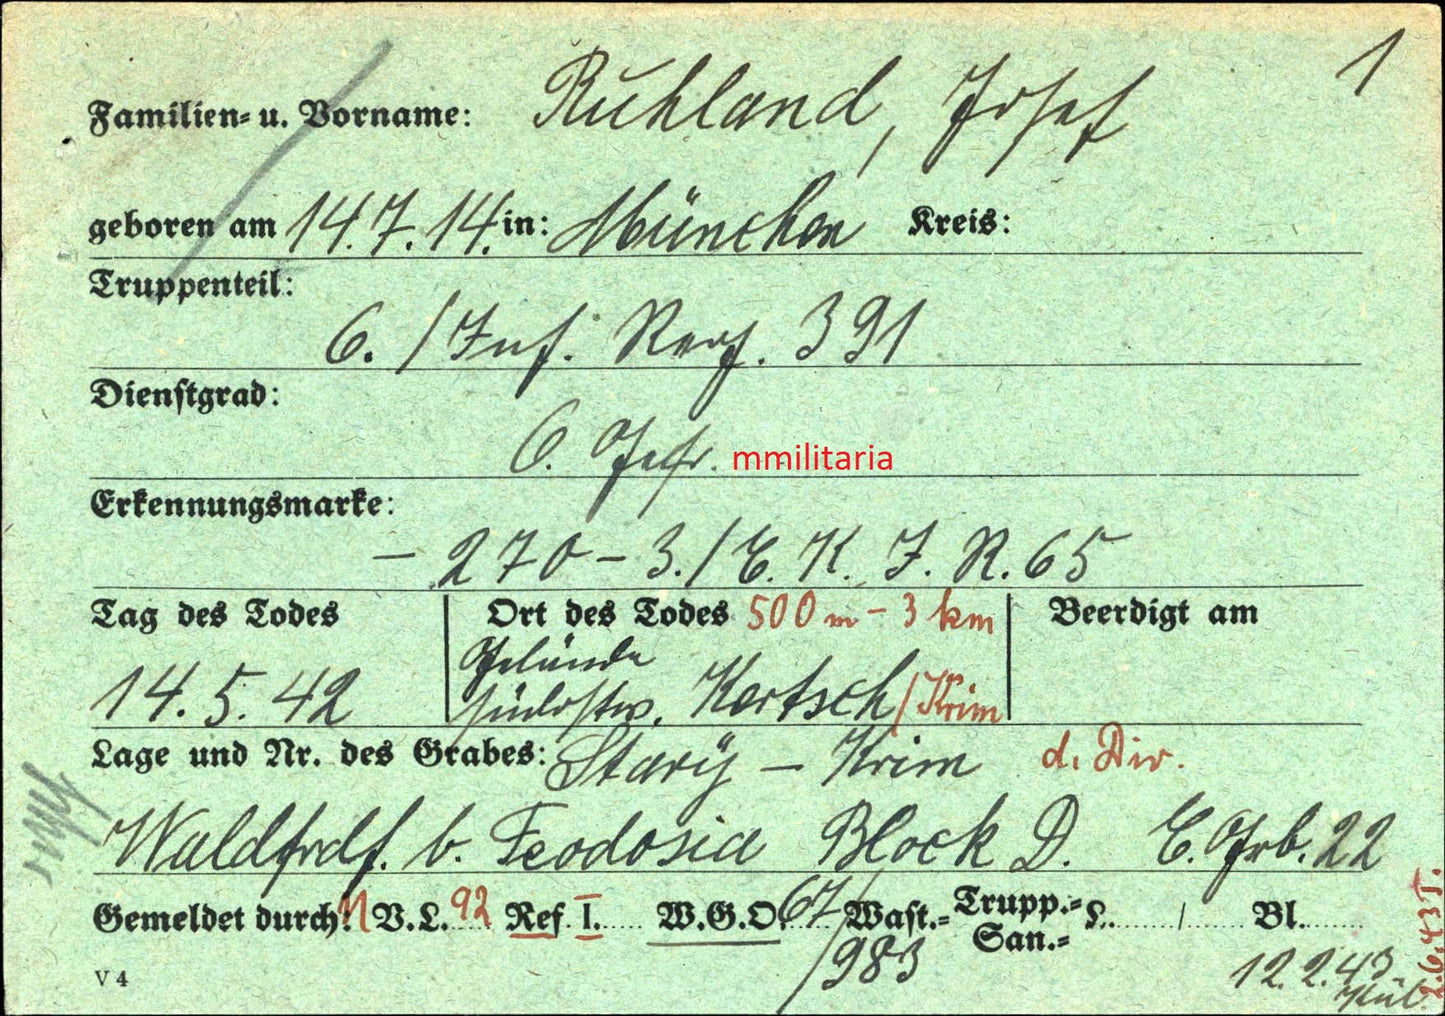 1
Familien- u. Vorname: Ruhland, Josef
geboren am 14.7.14. in: München Kreis:
Truppenteil:
6./Inf. Reg. 391
Dienstgrad:
O. Gefr. mmilitaria
Erkennungsmarke:
- 270 - 3./E. K. J. R. 65
Tag des Todes Ort des Todes 500 m - 3 km Beerdigt am
Gelände
14. 5. 42 südostw. Kertsch/Krim
Lage und Nr. des Grabes: Stary - Krim d. Div.
Waldfrdf. b. Feodosia Block D. E. Grb. 22
Gemeldet durch: V.L. 92 Ref. I. W.G.O. 67/983 Wast.- Trupp.- San.- L. / Bl.
V 4
12.2.43